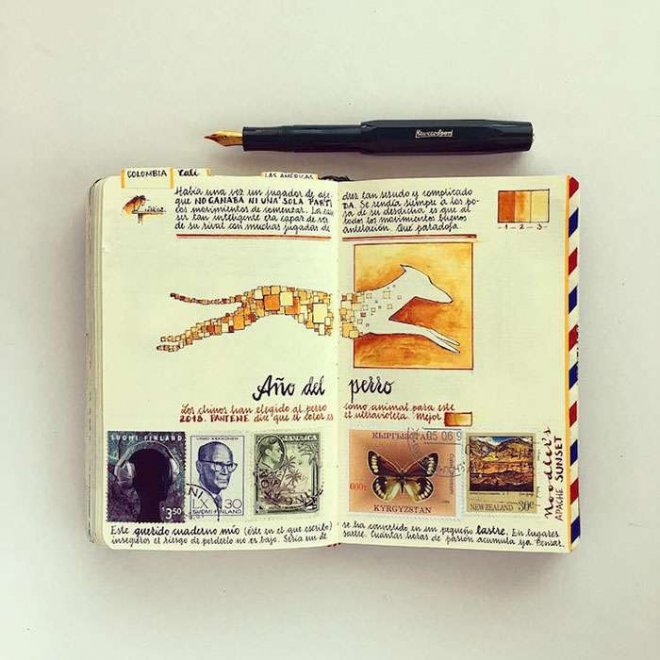 Kaweco Sport
COLOMBIA Cali
LAS AMÉRICAS
Había una vez un jugador de aje
que NO GANABA NI UNA SOLA PARTI
los movimientos de comenzar. La
ser tan inteligente era capaz de
de su rival con muchas jugadas de
drez tan sesudo y complicado
DA. Se rendía siempre a los po
ja de su desdicha es que al
todos los movimientos buenos
antelación. Qué paradoja.
-1-2-3-
Año del perro
Los chinos han elegido al perro como animal para este
2018. PANTENE dice que el color es el ultravioleta. Mejor
SUOMI FINLAND
3,50
URHO KEKKONEN
30
SUOMI FINLAND
JAMAICA
05 06 9
600т
KYRGYZSTAN
NEW ZEALAND 30c
Noodler's
APACHE SUNSET
Este querido cuaderno mío (éste en el que escribo) se ha convertido en un pequeño lastre. En lugares
inseguros el riesgo de perderlo no es bajo. Sería un de sastre. Cuántas horas de pasión acumula ya. Pensar.